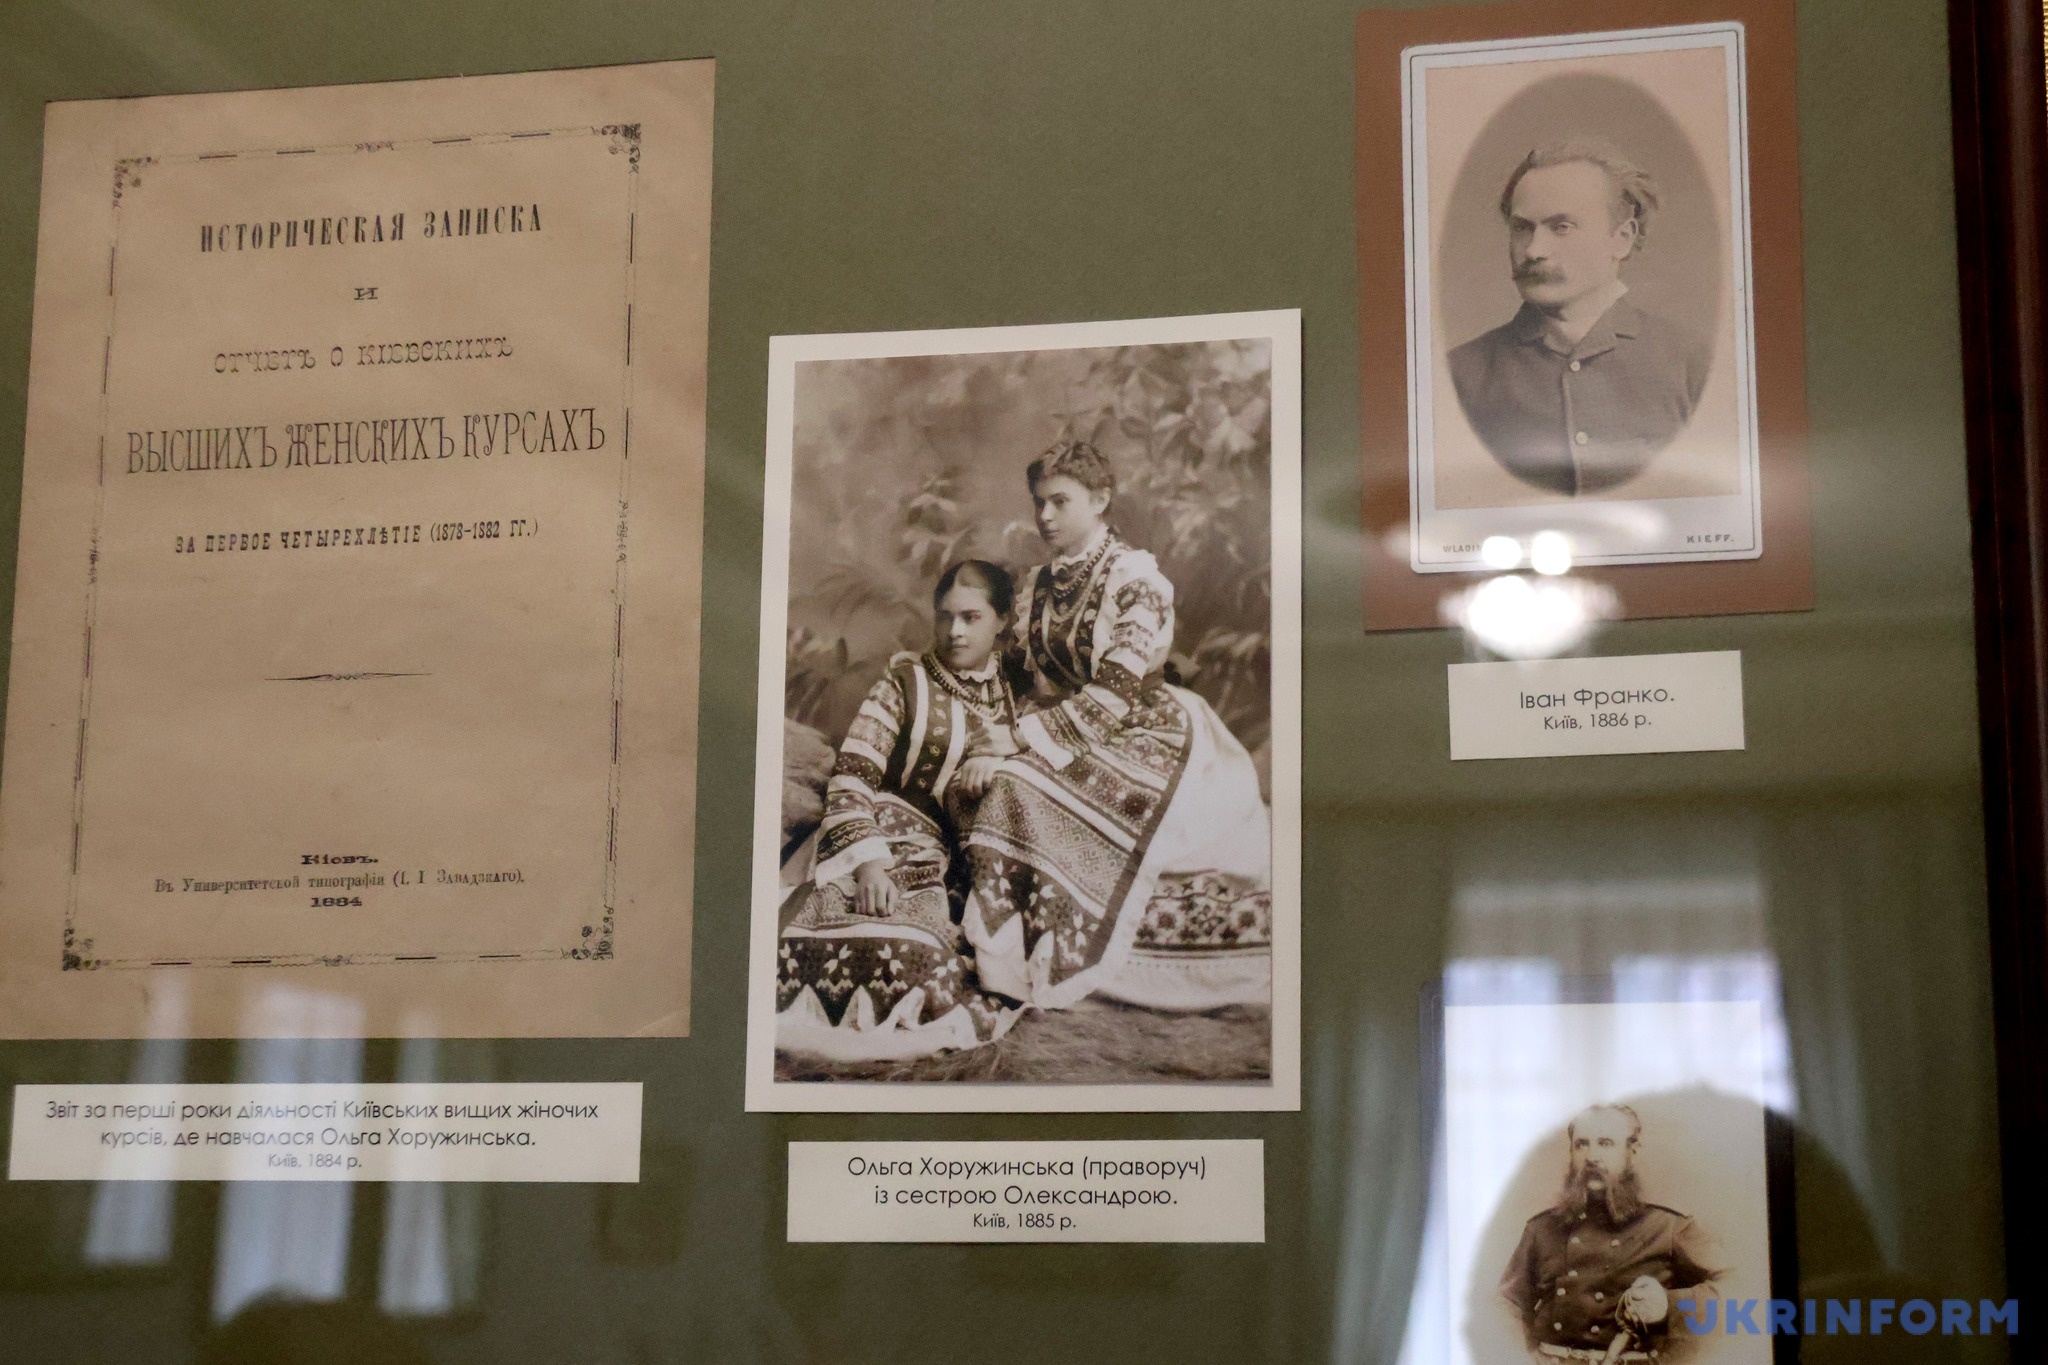 ИСТОРИЧЕСКАЯ ЗАПИСКА
И
ОТЧЕТЪ О КІЕВСКИХЪ
ВЫСШИХЪ ЖЕНСКИХЪ КУРСАХЪ
ЗА ПЕРВОЕ ЧЕТЫРЕХЛѢТІЕ (1878-1882 ГГ.)
Кіевъ.
Въ Университетской типографіи (І. І Завадзкаго).
1884
Звіт за перші роки діяльності Київських вищих жіночих
курсів, де навчалася Ольга Хоружинська.
Київ, 1884 р.
Ольга Хоружинська (праворуч)
із сестрою Олександрою.
Київ, 1885 р.
KIEFF.
Іван Франко.
Київ, 1886 р.
UKRINFORM